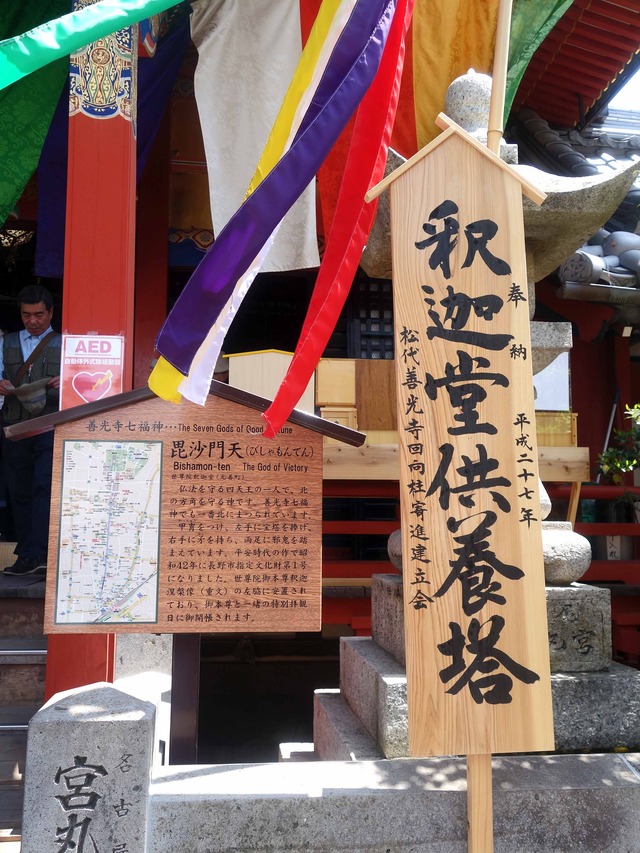 AED
自動体外式除細動器
善光寺七福神･･･The Seven Gods of Good Fortune
毘沙門天(びしゃもんてん)
Bishamon-ten The God of Victory
世尊院釈迦堂(元善町)
仏法を守る四天王の一人で、北
の方角を守る神です。善光寺七福
神でも一番北にまつられています。
甲冑をつけ、左手に宝塔を捧げ、
右手に矛を持ち、両足に邪鬼を踏
まえています。平安時代の作で昭
和42年に長野市指定文化財第1号
になりました。世尊院御本尊釈迦
涅槃像（重文）の左脇に安置され
ており、御本尊と一緒の特別拝観
日に御開帳されます。
奉納 平成二十七年
釈迦堂供養塔
松代善光寺回向柱寄進建立会
名古屋
宮丸